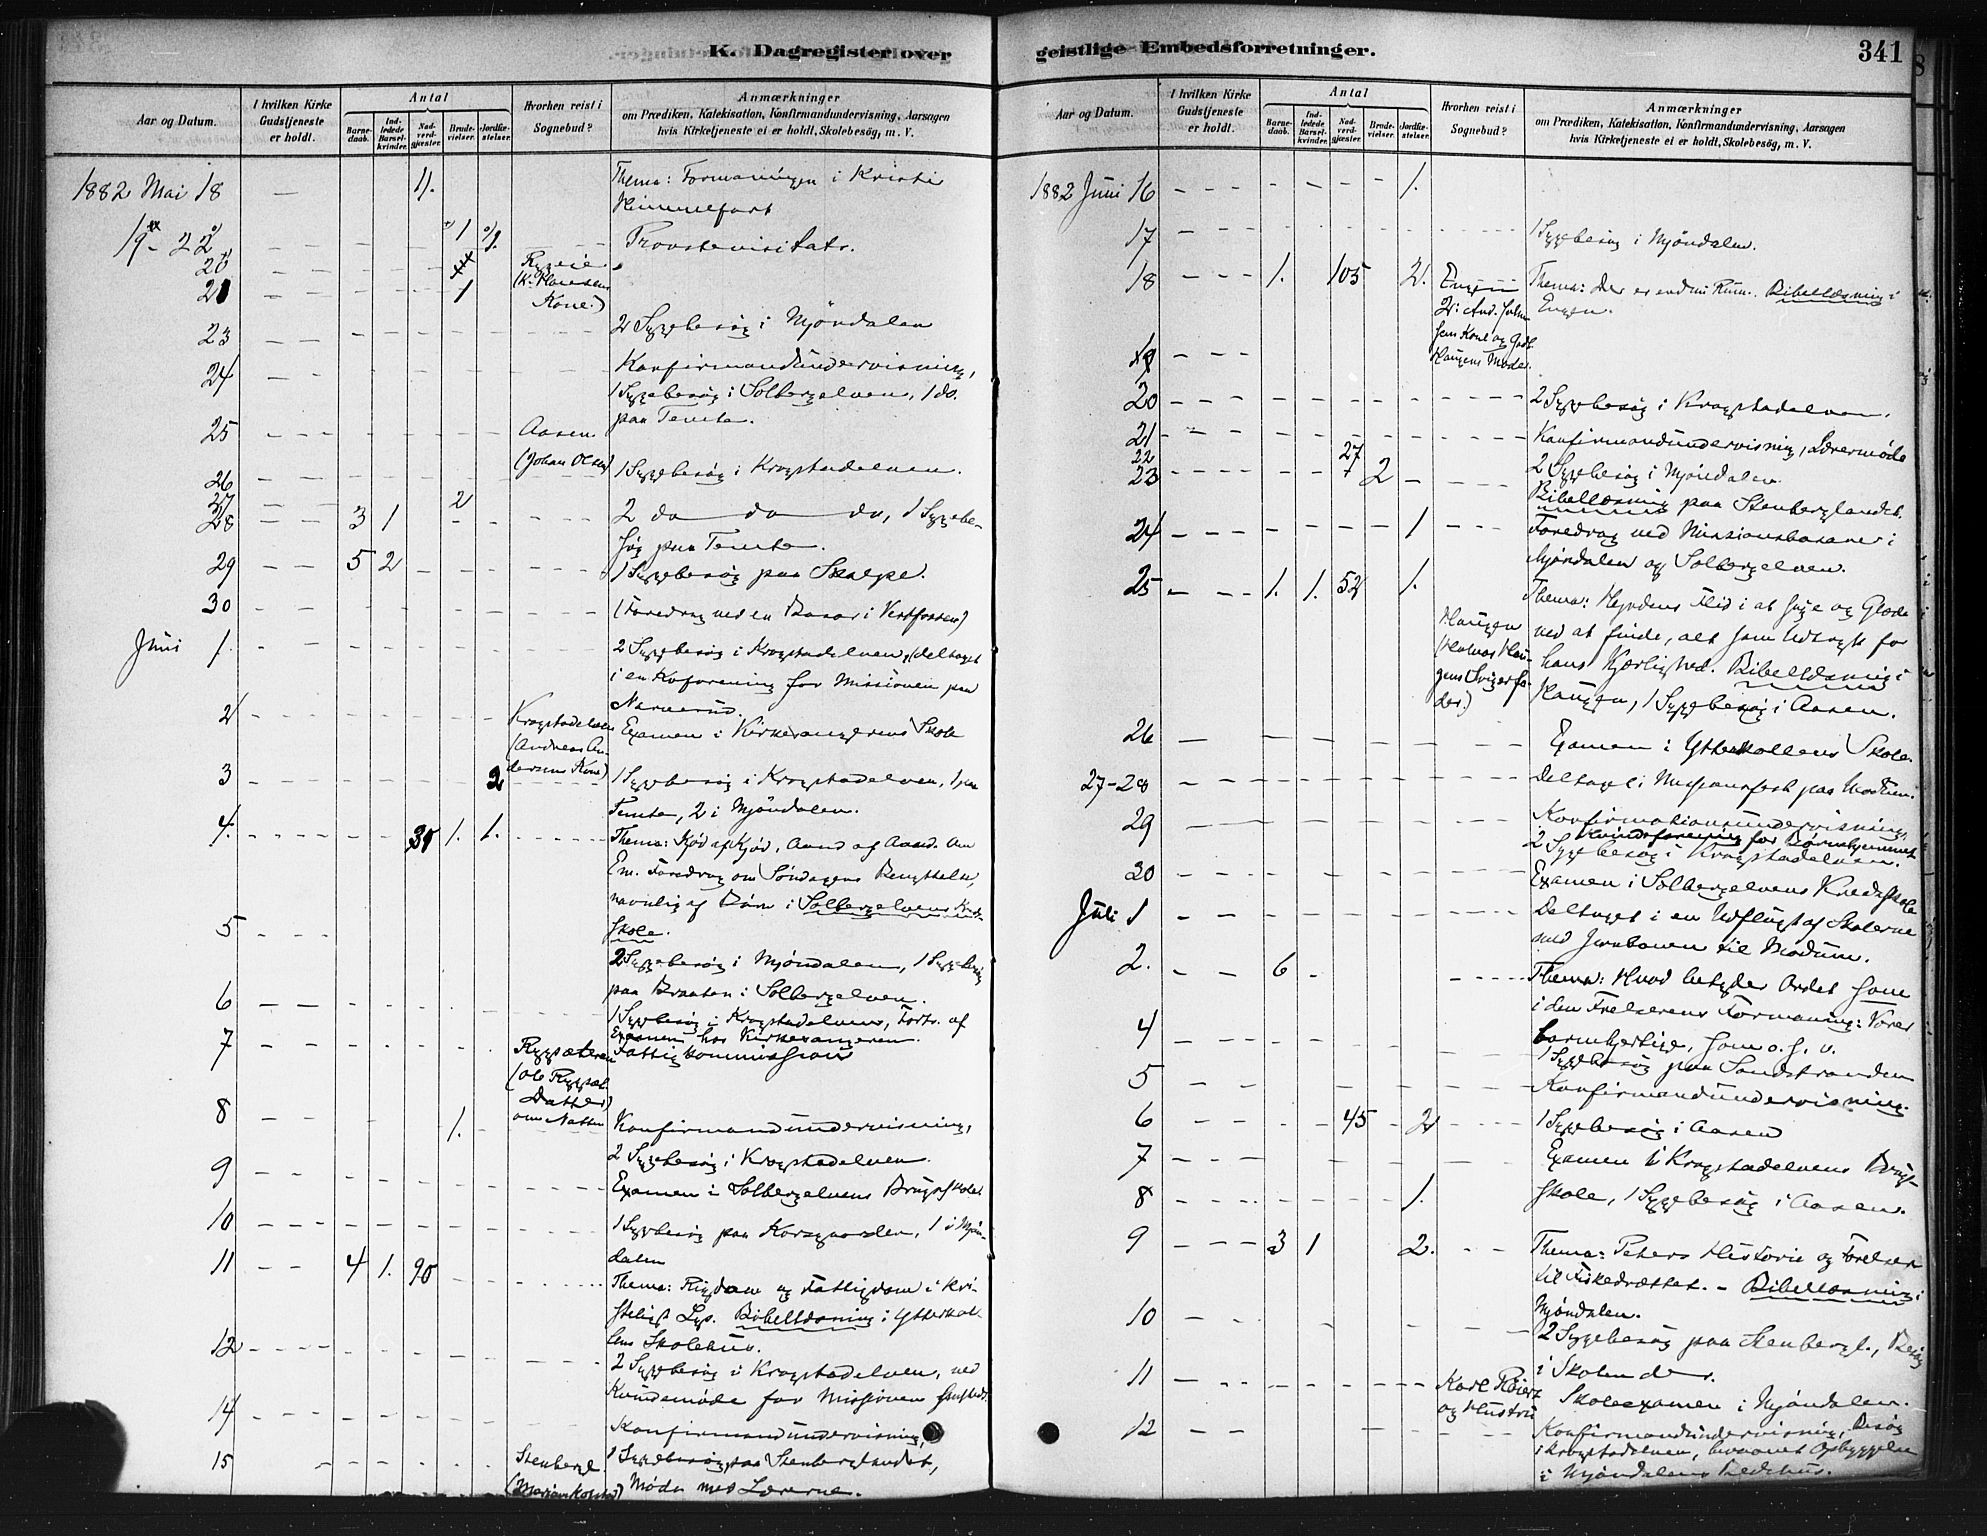 K. Dagregister over
Aar og Datum.
I hvilken Kirke Gudstjeneste er holdt.
Antal
Barnedaab.
Indledede Barselkvinder.
Nadverdgjæster.
Brudevielser.
Jordfæstelser.
Hvorhen reist i Sognebud?
Anmærkninger
om Prædiken, Katekisation, Konfirmandundervisning, Aarsagen
hvis Kirketjeneste ei er holdt, Skolebesög, m. V.
1882 Mai 18 — 11. Thema: Formaningen i Kristi
Himmelfart
19 - 22 1 1. Provstevisitats.
20
21 1 Kone.)
23 2 Sygebesøg i Mjøndalen
24 Konfirmandundervisning,
1 Sygebesøg i Solbergelven, 1 do.
paa Temte.
25 Aasen
(Johan Olsen) 1 Sygebesøg i Krogstadelven.
26
27 2
28 3 1 2 do do do, 1 Sygebe-
søg paa Temte.
29 5 2 1 Sygebesøg paa
30 (Foredrag ved en Basar i Vestfossen)
Juni 1. 2 Sygebesøg i Krogstadelven, (deltaget
i en Koforening for Missionen paa
Narverud.
2 Krogstadelven Examen i Kirkesangerens Skole
(Andreas An-
dersens Kone)
3 2 1 Sygebesøg i Krogstadelven, 1 paa
Temte, 2 i Mjøndalen.
4. 1. 1. Thema: Kjød af Kjød, Aand af Aand.
Em. Foredrag om Søndagens
navnlig af Børn i Solbergelvens
Skole.
5 2 Sygebesøg i Mjøndalen, 1 Sygebesøg
paa Braaten i Solbergelven.
6 1 Sygebesøg i Krogstadelven, Forts. af
Examen hos Kirkesangeren.
7 Fattigkommission
Datter)
om Natten
8 1. Konfirmandundervisning,
2 Sygebesøg i Krogstadelven.
9 Examen i Solbergelvens Brugsskole
10 1 Sygebesøg paa Korsgaarden, 1 i Mjøn-
dalen
11 4 1. 90 Thema: Rigdom og Fattigdom i kri-
steligt Lys. Bibellæsning i Ytterkol-
lens Skolehus.
12 2 Sygebesøg i Krogstadelven, ved
Kvindemøde for Missionen
14 Konfirmandundervisning,
15 Stenbergl. 1 Sygebesøg paa Stenberglandet,
Møde med Lærerne.
geistlige Embedsforretninger.
341
Aar og Datum.
I hvilken Kirke Gudstjeneste er holdt.
Antal
Barnedaab.
Indledede Barselkvinder.
Nadverdgjæster.
Brudevielser.
Jordfæstelser.
Hvorhen reist i Sognebud?
Anmærkninger
om Prædiken, Katekisation, Konfirmandundervisning, Aarsagen
hvis Kirketjeneste ei er holdt, Skolebesög, m. V.
1882 Juni 16 1.
17 1 Sygebesøg i Mjøndalen.
18 1. 105 2. Engen Thema: Der er endnu Rum. Bibellæsning i
Engen.
Haugens Moder.
19
20 2 Sygebesøg i Krogstadelven.
21 Konfirmandundervisning, Lærermøde
22 27 2 Sygebesøg i Mjøndalen.
23 2 Bibellæsning paa Stenberglandet.
24 1 Foredrag ved Missionsbasarer i
Mjøndalen og Solbergelven.
25 1. 1. 52 1. Thema: Hyrdens Flid i at søge og Glæde
Haugen ved at finde, alt som Udtryk for
hans Kjærlighed. Bibellæsning i
Haugen, 1 Sygebesøg i Aasen.
26 Examen i Ytterkollens Skole.
27-28 Deltaget i Missionsfest paa Modum.
29 Konfirmationsundervisning,
Kvindeforening for Børnehjemmet
2 Sygebesøg i Krogstadelven.
30 Examen i Solbergelvens Kredsskole
Juli 1 Deltaget i en Udflugt af Skolerne
med Jernbanen til Modum.
2. 6 Thema: Hvad betyder Ordet som
i den Frelserens Formaning: Værer
barmhjertige, som o. s. v.
4 1 Sygebesøg paa Sandstranden
5 Konfirmandundervisning.
6 45 2 1 Sygebesøg i Aasen
7 Examen i Krogstadelvens Brugs-
8 1. Skole, 1 Sygebesøg i Aasen.
9 3 1 2. Thema: Peters Historie og
til Fiskedrættet. - Bibellæsning i
Mjøndalen.
10 2 Sygebesøg paa Stenbergl., Besøg
i Skolen der.
11 Karl
og Hustru Skoleexamen i Mjøndalen.
12 Konfirmandundervisning, Besøg
i Krogstadelven, Opbyggelse
i Mjøndalens Bedehus.